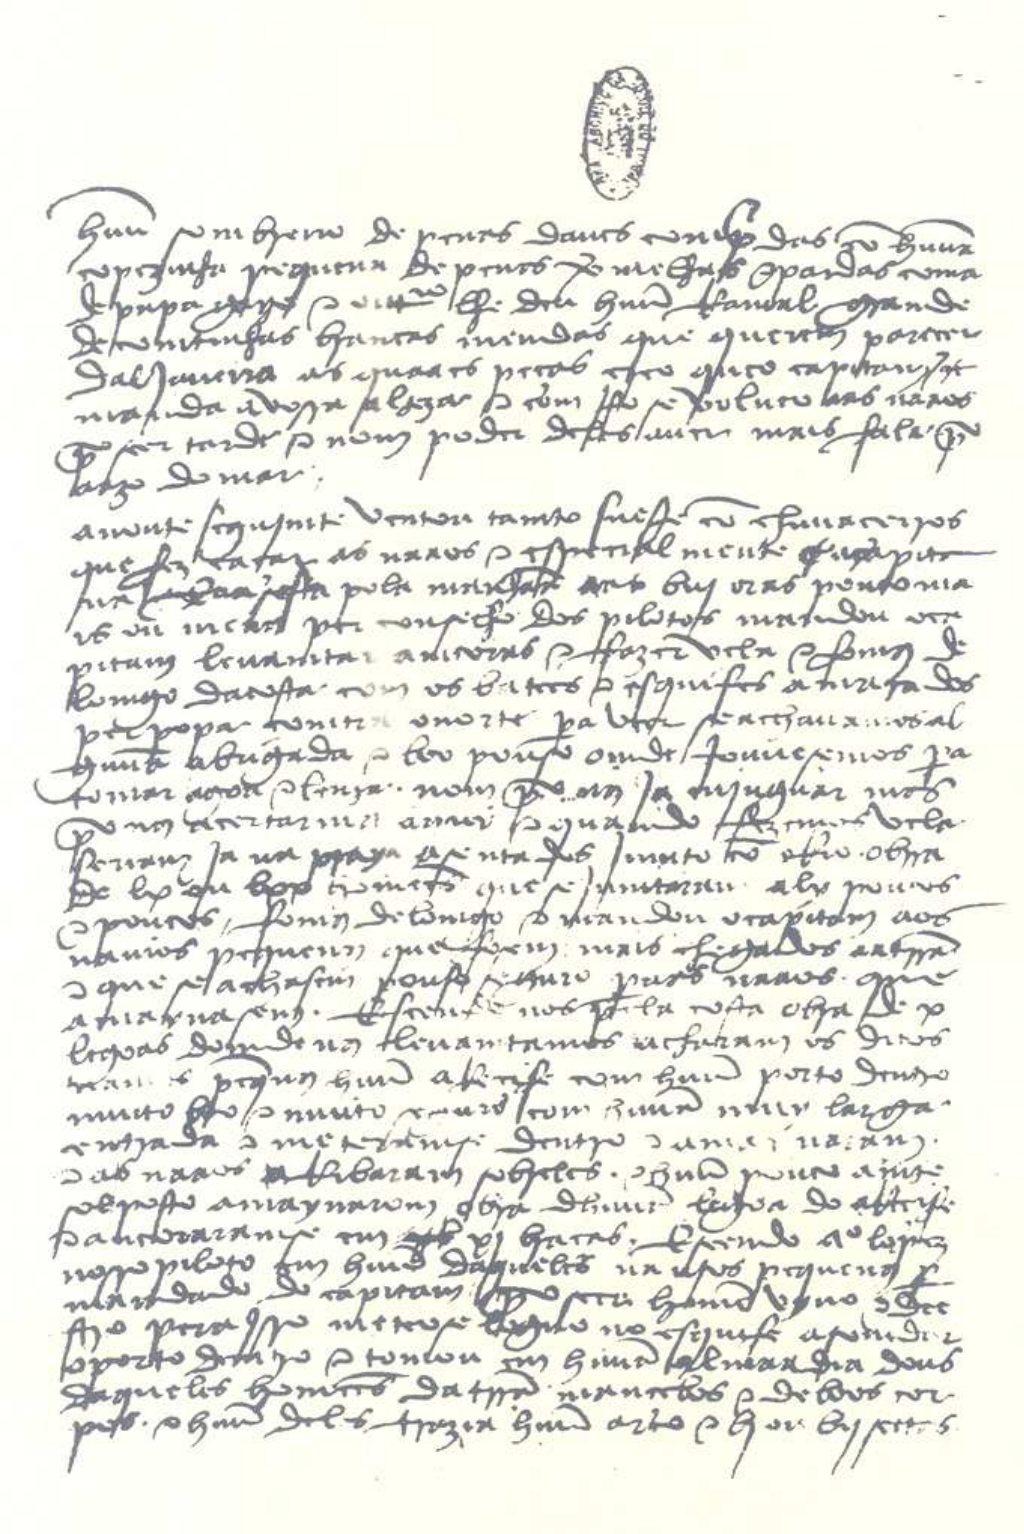 huũ sombreiro de penas daues compridas cõ huũa
copezinha pequena de penas vermelhas e pardas coma
de papagayo e outro lhe deu huũ Ramal grande
de comtinhas brancas meudas que querem parecer
daljaueira as quaaes peças creo queo capitam
manda avossa alteza e com jsto se volueo aas naaos
por ser tarde e nom poder deles auer mais fala por
aazo do mar.
a noute segujmte ventou tamto sueste cõ chuuaceiros
que fez caçar as naaos e espicialmente a capita
na. e aa sesta pola manhaã as biij oras pouco ma
is ou menos per conselho dos pilotos mandou o ca
pitam leuamtar amcoras e fazer vela e fomos de
lomgo dacosta com os batees e esquifes amarados
per popa comtra o norte pera veer se achauamos al
guũa abrigada e boo pouso omde jouuesemos pera
tomar agoa e lenha. nom por nos ja minguar mas
por nos acertarmos aquy e quamdo fezemos vela
seriam ja na praya asentados jumto cõ o Rio obra
de lx ou lxx homeẽs que se jumtaram aly poucos
e poucos / fomos de lomgo e mandou o capitam aos
nauios pequenos que fosem mais chegados aa terra
e que se achasem pouso seguro peras naaos. que
amaynasem. E seendo nos pela costa obra de x
legoas domde nos leuamtamos acharam os ditos
nauios pequenos huũ aRecife com huũ porto dentro
muito boo e muito seguro com huũa muy larga
entrada e meteramse dentro e amaynaram.
e as naaos aRibaram sobreles. e huũ pouco amte
sol posto amaynarom obra dhuũa legoa do aRecife
e ancoraramse em xj braças. E seendo Aº lopez
nosso piloto em huũ daqueles nauios pequenos per
mandado do capitam por seer homem vyuo e deestro
pera jsso meteose logo no esquife a somdar
o porto demtro e tomou em huũa almaadia dous
daqueles homeẽs da terra mancebos e de boos cor
pos. e huũ deles trazia huũ arco e bj ou bij seetas